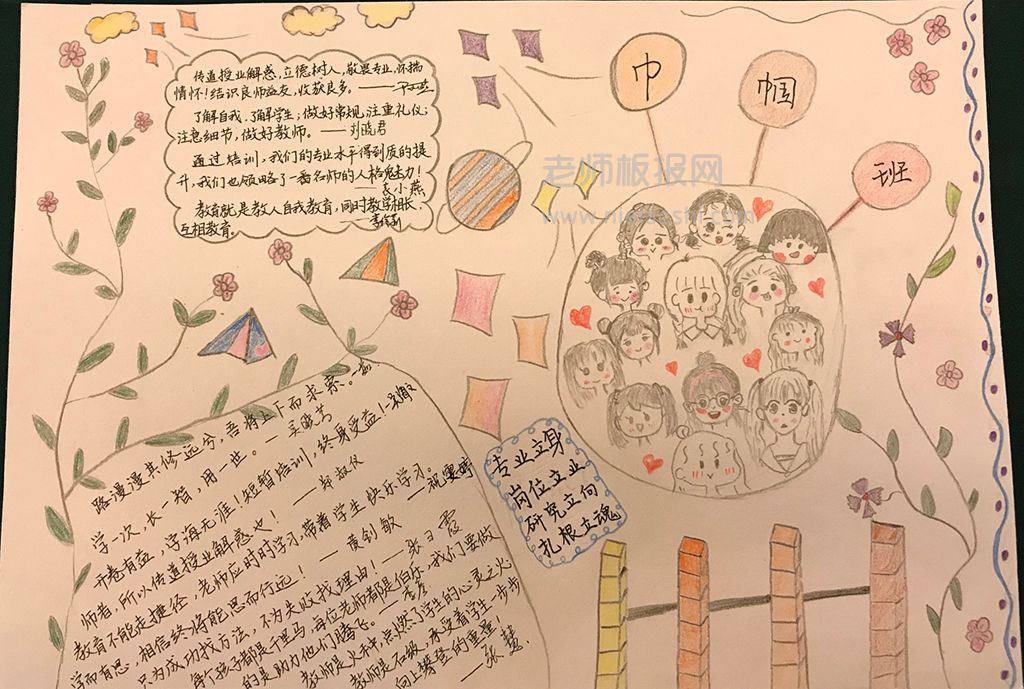 传道授业解惑,立德树人,敬畏专业,怀揣
情怀!结识良师益友,收获良多。——
了解自我、了解学生;做好常规,注重礼仪;
注意细节,做好教师。——刘晓君
通过培训,我们的专业水平得到质的提
升,我们也领略了一番名师的人格魅力!
——袁小燕
教育就是教人自我教育,同时教学相长,
互相教育。
巾
帼
班
老师板报网
路漫漫其修远兮,吾将上下而求索。
学一次,长一智,用一世。——吴晓芳
开卷有益,学海无涯!短暂培训,终身受益!
——郑淑仪
师者,所以传道授业解惑也!
教育不能走捷径,老师应时时学习,带着学生快乐学习。
——祝雯婷
学而有思,相信终将能思而行远!——黄钊敏
只为成功找方法,不为失败找理由!——张日霞
每个孩子都是千里马,每位老师都是伯乐,我们要做
的是助力他们腾飞。
教师是火种,点燃了学生的心灵之火
教师是石级,承受着学生一步步
向上攀登的重量!
——张慧
专业立身
岗位立业
研究立向
扎根立魂